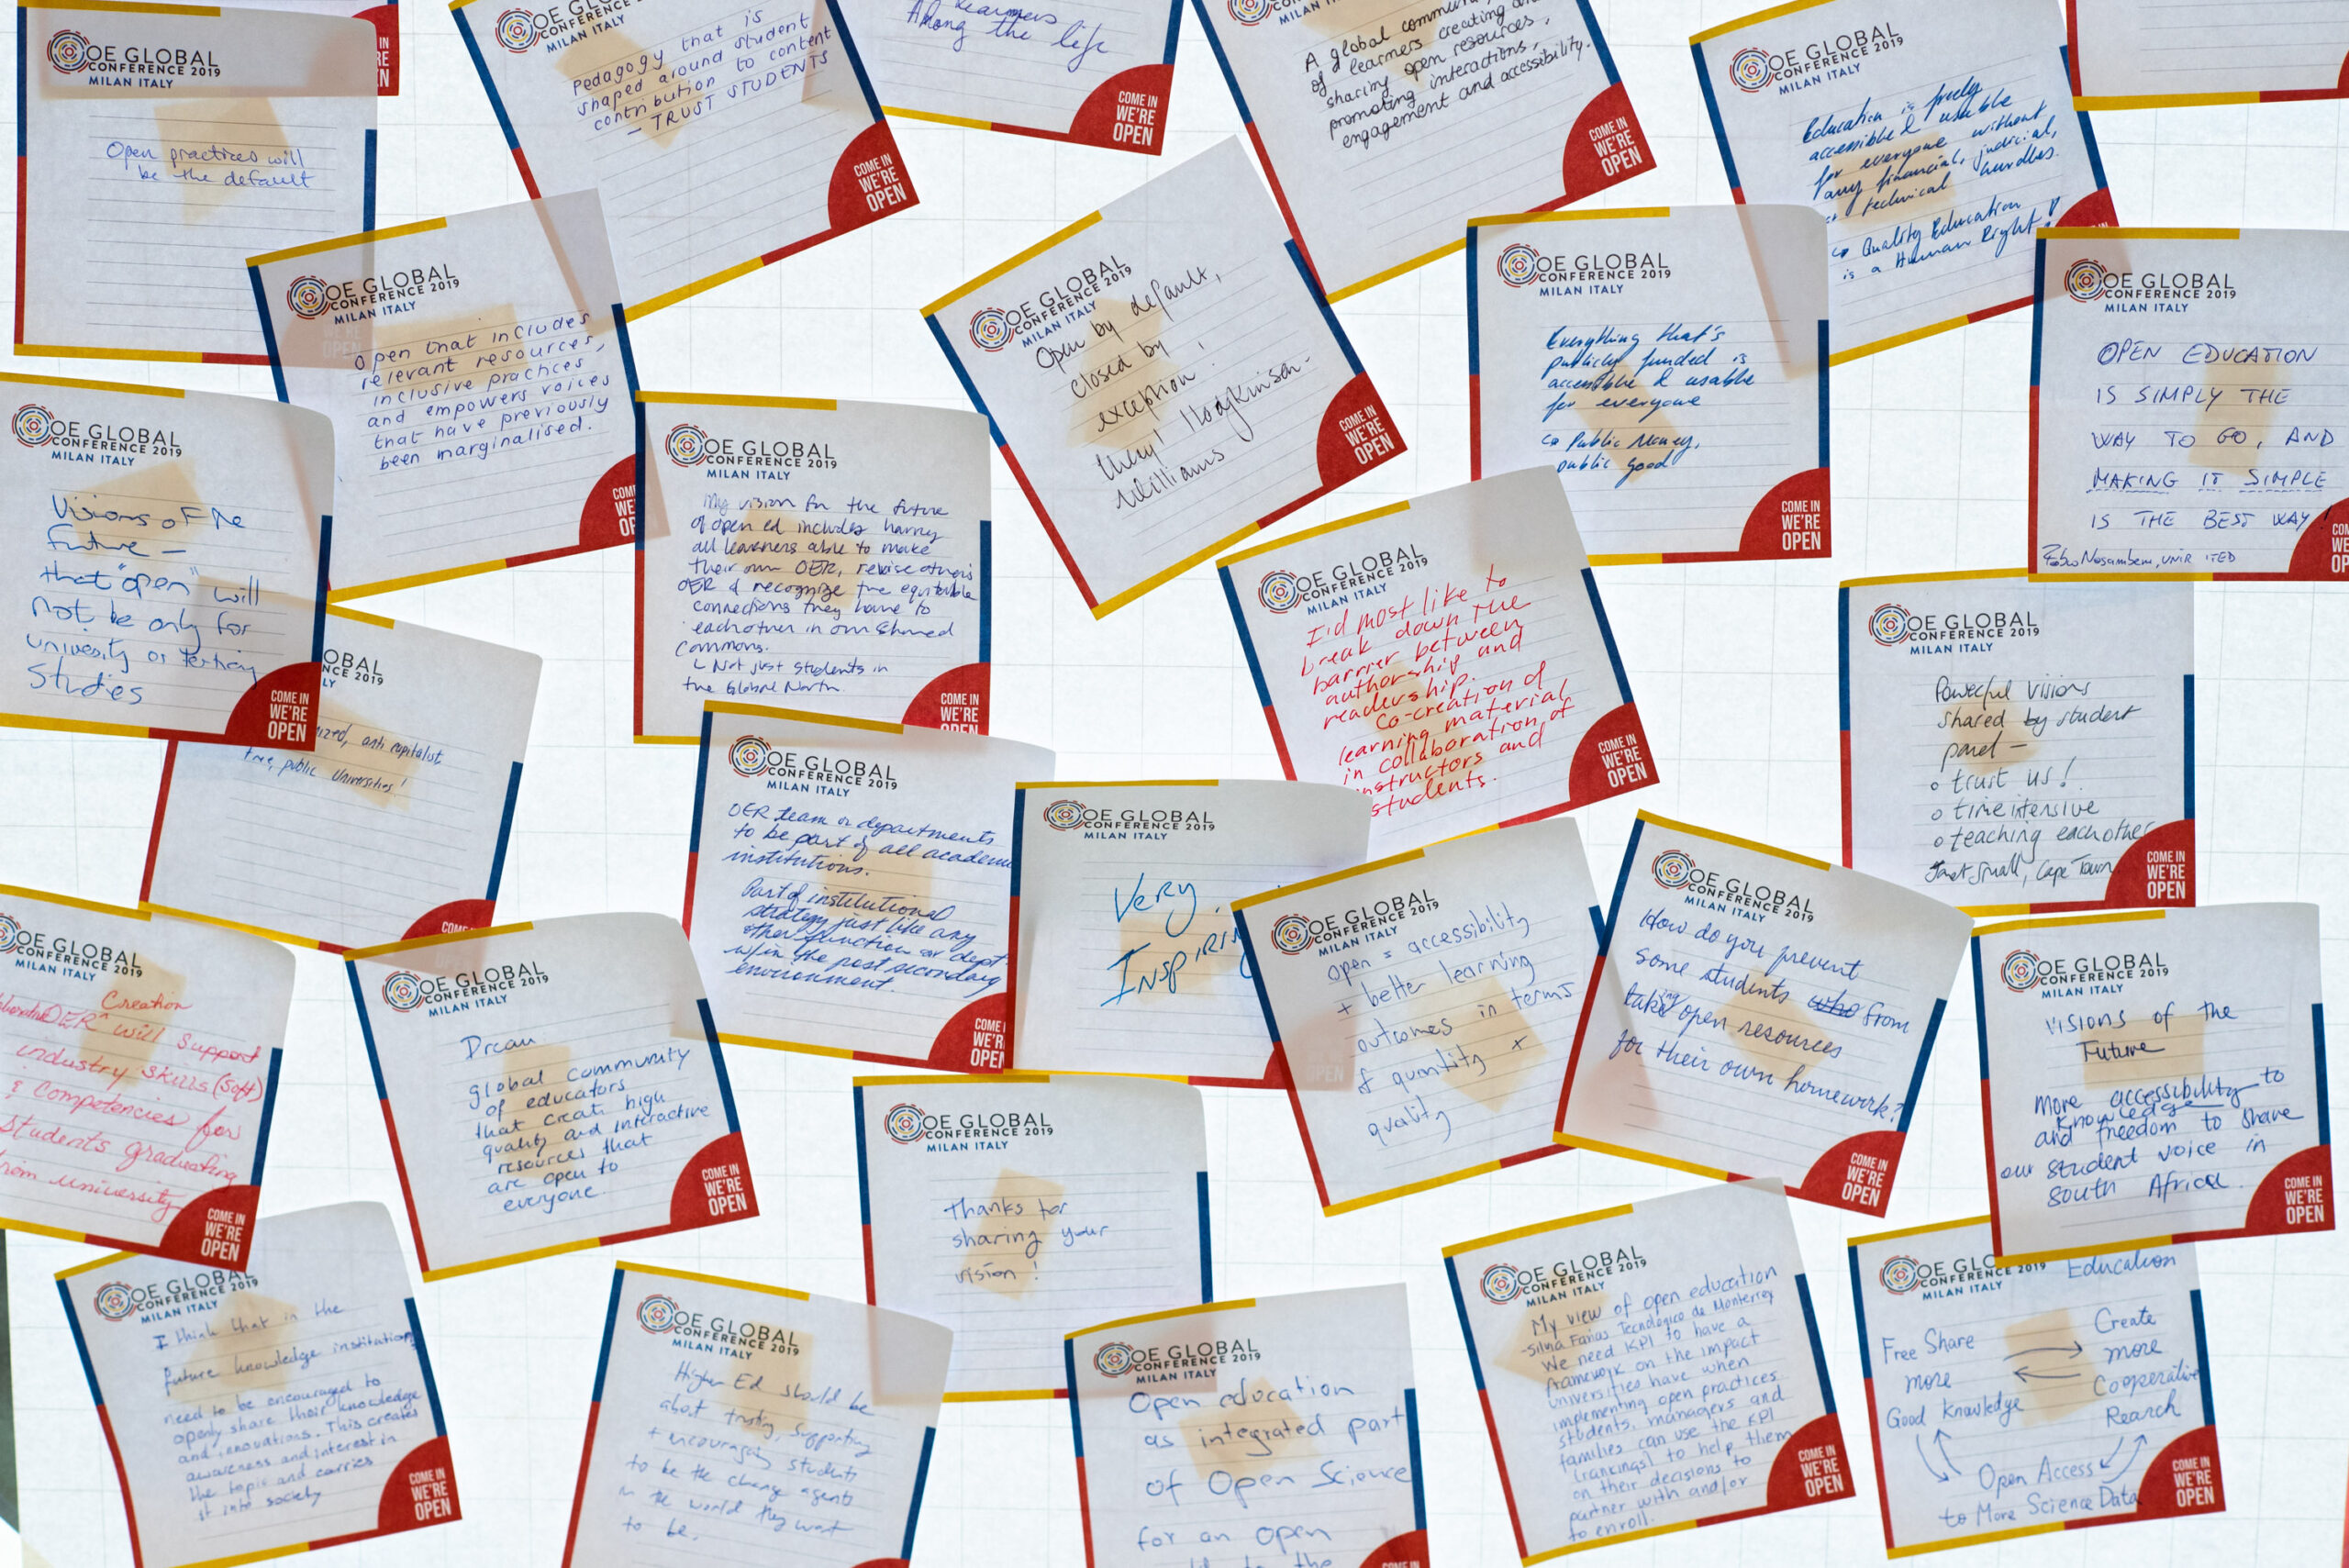 OE GLOBAL
CONFERENCE 2019
MILAN ITALY
Open practices will
be the default
IN
RE
N
OE GLOBAL
CONFERENCE 2019
MILAN IT
Pedagogy that is
shaped around student
contribution to content
– TRUST STUDENTS
COME IN
WE'RE
OPEN
Learners
Among the life
COME IN
WE'RE
OPEN
MILAN
A global commun
of learners creating an
sharing open resources,
promoting interactions,
engagement and accessibility.
COME IN
WE'RE
OPEN
OE GLOBAL
CONFERENCE 2019
MILAN ITALY
Education is freely
accessible & usable
for everyone without
any financial, judicial,
or technical hurdles.
↳ Quality Education
is a Human Right!
IN
OE GLOBAL
CONFERENCE 2019
MILAN ITALY
open that includes
relevant resources,
inclusive practices
and empowers voices
that have previously
been marginalised.
COM
WE
OF
OE GLOBAL
CONFERENCE 2019
MILAN ITALY
Open by default,
closed by
exception!
Hodgkinson-
Williams
COME IN
WE'RE
OPEN
OE GLOBAL
CONFERENCE 2019
MILAN ITALY
Everything that's
publicly funded is
accessible & usable
for everyone
↳ Public Money,
public good
COME IN
WE'RE
OPEN
OE GLOBAL
CONFERENCE 2019
MILAN ITALY
OPEN EDUCATION
IS SIMPLY THE
WAY TO GO, AND
MAKING IT SIMPLE
IS THE BEST WAY!
UNIR ITED
COM
WE
OP
OE GLOBAL
CONFERENCE 2019
MILAN ITALY
Visions of the
future –
that "open" will
not be only for
university or tertiary
studies
COME IN
WE'RE
OPEN
OE GLOBAL
CONFERENCE 2019
MILAN ITALY
My vision for the future
of open ed includes having
all learners able to make
their own OER, revise others
OER & recognize the equitable
connections they have to
each other in our shared
commons.
↳ Not just students in
the Global North.
COME IN
WE'RE
OPEN
OE GLOBAL
CONFERENCE 2019
MILAN ITALY
I'd most like to
break down the
barrier between
authorship and
readership.
co-creation of
learning material
in collaboration of
instructors and
students.
COME IN
WE'RE
OPEN
OE GLOBAL
CONFERENCE 2019
MILAN ITALY
Powerful visions
shared by student
panel –
o trust us!
o time intensive
o teaching each other
Janet Small, Cape Town
COME IN
WE'RE
OPEN
OBAL
NCE 2019
LY
ized, anti capitalist
free, public Universities!
COME
OE GLOBAL
CONFERENCE 2019
MILAN ITALY
OER team or departments
to be part of all academ
institutions.
Part of institutional
strategy just like any
other function or dept
w/in the post secondary
environment.
COME I
WE'R
OPEN
OE GLOBAL
CONFERENCE 2019
MILAN ITALY
Very
Inspirin
OE GLOBAL
CONFERENCE 2019
MILAN ITALY
open = accessibility
+ better learning
outcomes in terms
of quantity +
quality
OE GLOBAL
CONFERENCE 2019
MILAN ITALY
How do you prevent
some students who from
taking open resources
for their own homework?
COME IN
WE'RE
OPEN
OE GLOBAL
CONFERENCE 2019
MILAN ITALY
Visions of the
Future
More accessibility to
knowledge
and freedom to share
our student voice in
South Africa.
COME IN
WE'RE
OPEN
OE GLOBAL
CONFERENCE 2019
MILAN ITALY
Creation
OER ^ will support
industry skills (soft)
& competencies for
students graduating
from university
COME IN
WE'RE
OPEN
OE GLOBAL
CONFERENCE 2019
MILAN ITALY
Dream
global community
of educators
that create high
quality and interactive
resources that
are open to
everyone.
COME IN
WE'RE
OPEN
OE GLOBAL
CONFERENCE 2019
MILAN ITALY
Thanks for
sharing your
vision!
OE GLOBAL
CONFERENCE 2019
MILAN ITALY
I think that in the
future knowledge institutions
need to be encouraged to
openly share their knowledge
and innovations. This creates
awareness and interest in
the topic and carries
it into society
COME IN
WE'RE
OPEN
OE GLOBAL
CONFERENCE 2019
MILAN ITALY
Higher Ed should be
about trusting, supporting
+ encouraging students
to be the change agents
in the world they want
to be.
OE GLOBAL
CONFERENCE 2019
MILAN ITALY
Open education
as integrated part
of Open Science
for an open
to the
COME IN
OE GLOBAL
CONFERENCE 2019
MILAN ITALY
My view of open education
-Silvia Farias Tecnológico de Monterrey
We need KPI to have a
framework on the impact
universities have when
implementing open practices
students, managers and
families can use the KPI
(rankings) to help them
on their decisions to
partner with and/or
to enroll.
COME IN
WE'RE
OPEN
OE GLO
CONFERENCE 2019
MILAN ITALY
Education
Free Share
more
Good Knowledge
Create
more
Cooperative
Rearch
Open Access
to More Science Data
COME IN
WE'RE
OPEN